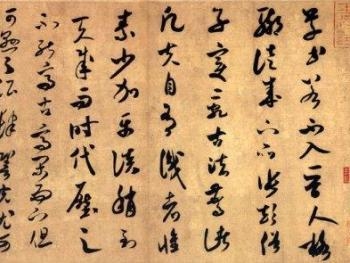 草書若不入晋人格
輒徒成下品張顛俗
子變亂古法驚諸
凡夫自有識者懷
素少加平淡稍到
天成而時代壓之
不能高古高閑而下但
可懸之酒肆䛒光尤可